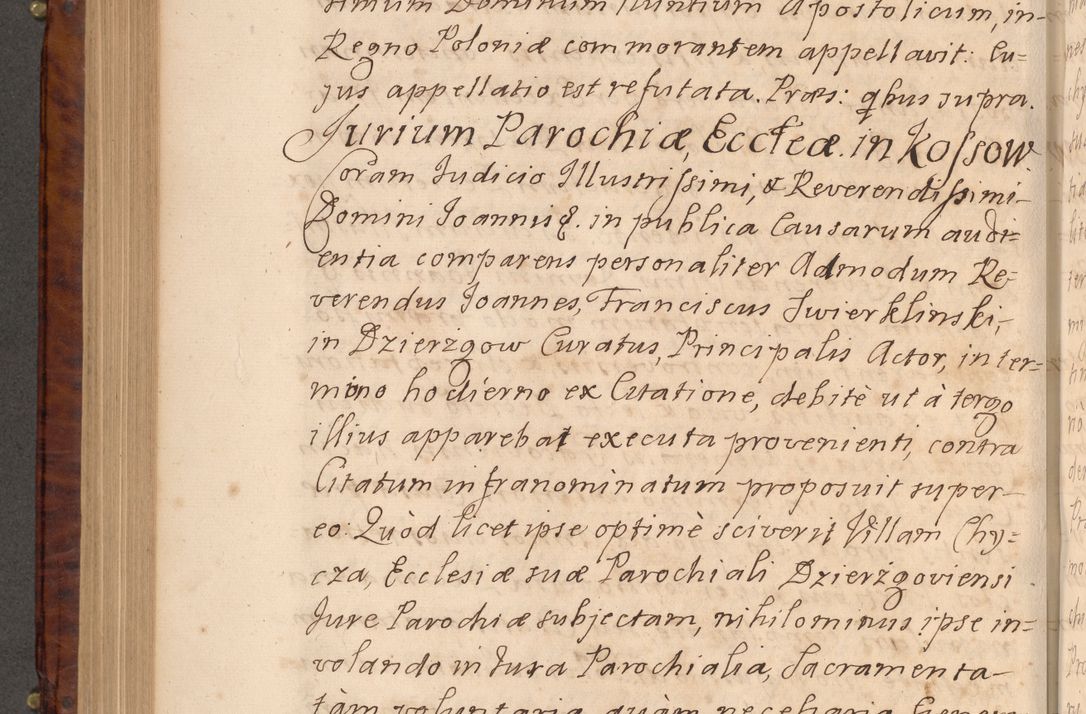 simum Dominum Nuntium Apostolicum, in-
Regno Poloniæ commorantem appellavit: Cu=
jus appellatio est refutata. Præs: qbus supra.
Jurium Parochiæ, Eccleæ. in Kossow.
Coram Iudicio Illustrissimi, & Reverendissimi-
Domini Joannis &. in publica Causarum audi=
entia comparens personaliter Admodum Re=
verendus Joannes, Franciscus Swierklinski,
in Dzierżgow Curatus, Principalis Actor, in ter=
mino hodierno ex Citatione, debitè ut à tergo
illius apparebat executa provenienti, contra
Citatum infranominatum proposuit super-
eo: Quòd licet ipse optimè sciverit Villam Chy=
cza, Ecclesiæ suæ Parochiali Dzierżgoviensi
Jure Parochiæ subjectam, nihilominus ipse in=
volando in Jura Parochialia, Sacramenta-
tàm voluntaria, quàm necessaria